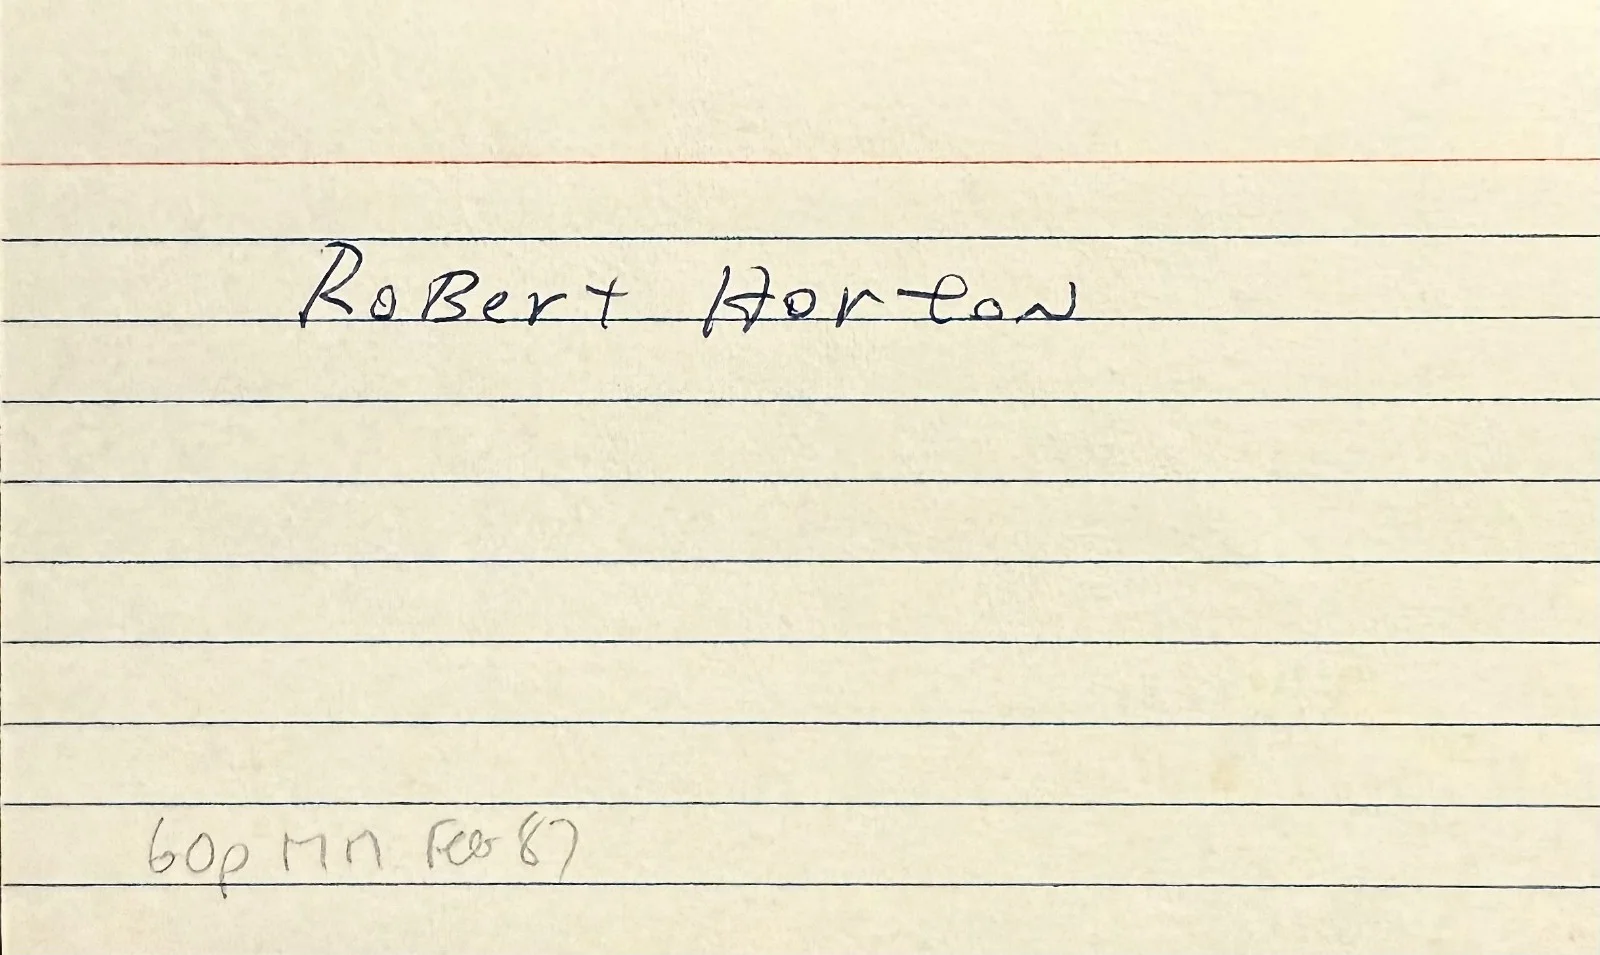 RoBert Horton
60p MM Feb 87